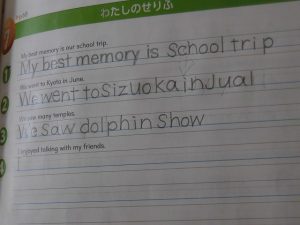 わたしのせりふ
My best memory is our school trip.
1 My best memory is school trip
We went to Kyoto in June.
2 We went to Sizuoka in Jual
We saw many temples.
3 We Saw dolphin Show
I enjoyed talking with my friends.
4 I